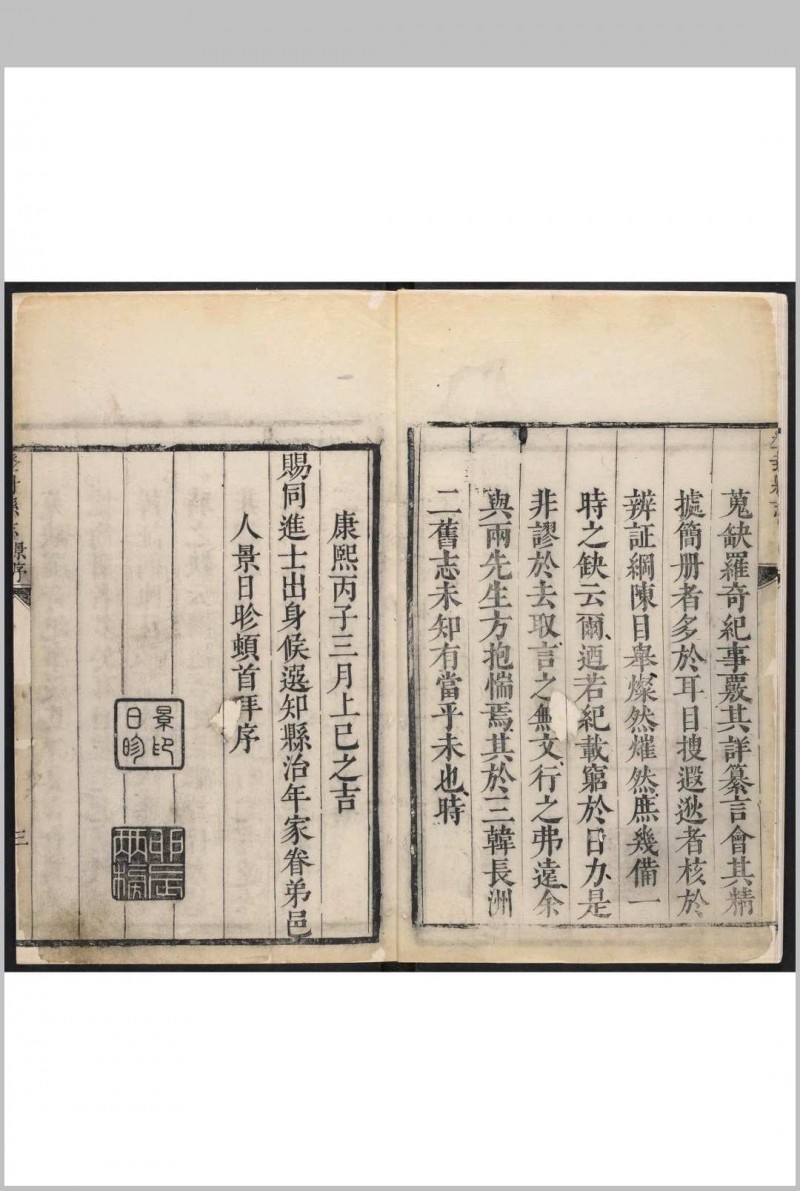 蒐缺羅奇紀事覈其詳纂言會其精
據簡册者多於耳目搜遐逖者核於
辨証綱陳目舉燦然熣然庶幾備一
時之缺云爾迺若紀載窮於日力是
非謬於去取言之無文行之弗遠余
與兩先生方抱惴焉其於三韓長洲
二舊志未知有當乎未也時
康熙丙子三月上巳之吉
賜同進士出身候選知縣治年家眷弟邑
人景日昣頓首拜序
景印
日昣
登封縣志
景序
三